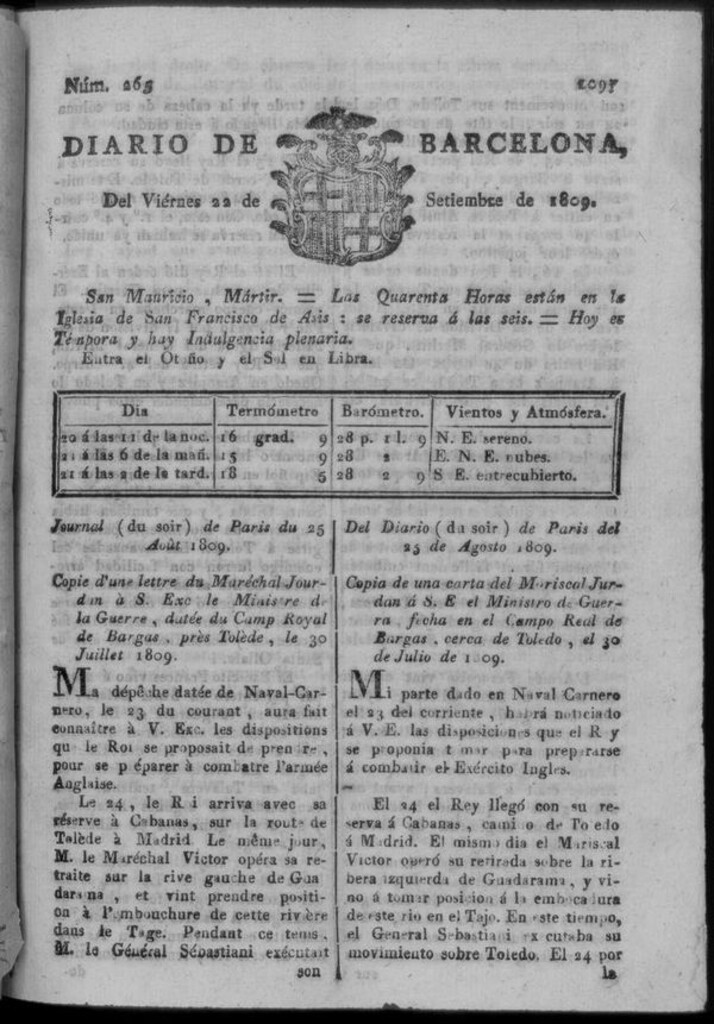 Núm. 265 1097
DIARIO DE BARCELONA,
Del Viérnes 22 de Setiembre de 1809.
San Mauricio, Mártir. = Las Quarenta Horas están en la
Iglesia de San Francisco de Asis : se reserva á las seis. = Hoy es
Témpora y hay Indulgencia plenaria.
Entra el Otoño y el Sol en Libra.
Dia Termómetro Barómetro. Vientos y Atmósfera.
20 á las 11 de la noc. 16 grad. 9 28 p. 1 l. 9 N. E. sereno.
21 á las 6 de la mañ. 15 9 28 2 E. N. E. nubes.
21 á las 2 de la tard. 18 5 28 2 9 S E. entrecubierto.
Journal (du soir) de Paris du 25
Août 1809.
Copie d'une lettre du Maréchal Jour-
dan à S. Exc le Ministre de
la Guerre, datée du Camp Royal
de Bargas, près Tolède, le 30
Juillet 1809.
Ma dépêche datée de Naval-Car-
nero, le 23 du courant, aura fait
connaître à V. Exc. les dispositions
que le Roi se proposait de prendre,
pour se préparer à combatre l'armée
Anglaise.
Le 24, le Roi arriva avec sa
réserve à Cabanas, sur la route de
Tolède à Madrid. Le même jour,
M. le Maréchal Victor opéra sa re-
traite sur la rive gauche de Gua
darama, et vint prendre positi-
on à l'embouchure de cette rivière
dans le Tage. Pendant ce tems,
M. le Général Sébastiani exécutait
son
Del Diario (du soir) de Paris del
25 de Agosto 1809.
Copia de una carta del Mariscal Jur-
dan á S. E el Ministro de Guer-
ra, fecha en el Campo Real de
Bargas, cerca de Toledo, el 30
de Julio de 1809.
Mi parte dado en Naval Carnero
el 23 del corriente, habrá noticiado
á V. E. las disposiciones que el Rey
se proponia tomar para prepararse
á combatir el Exército Ingles.
El 24 el Rey llegó con su re-
serva á Cabanas, camino de Toledo
á Madrid. El mismo dia el Mariscal
Victor operó su retirada sobre la ri-
bera izquierda de Guadarama, y vi-
no á tomar posicion á la embocadura
de este rio en el Tajo. En este tiempo,
el General Sebastiani executaba su
movimiento sobre Toledo. El 24 por
la